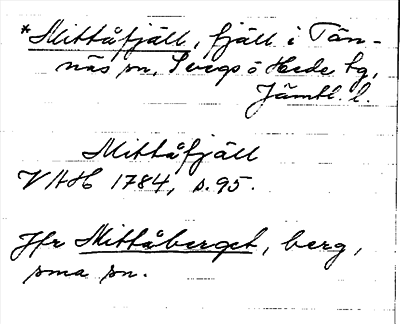 *Mittåfjäll, fjäll i Tän-
näs sn, Svegs o Hede tg,
Jämtl. l.
Mittåfjäll
VAH 1784, s. 95.
Jfr Mittåberget, berg,
sma sn.